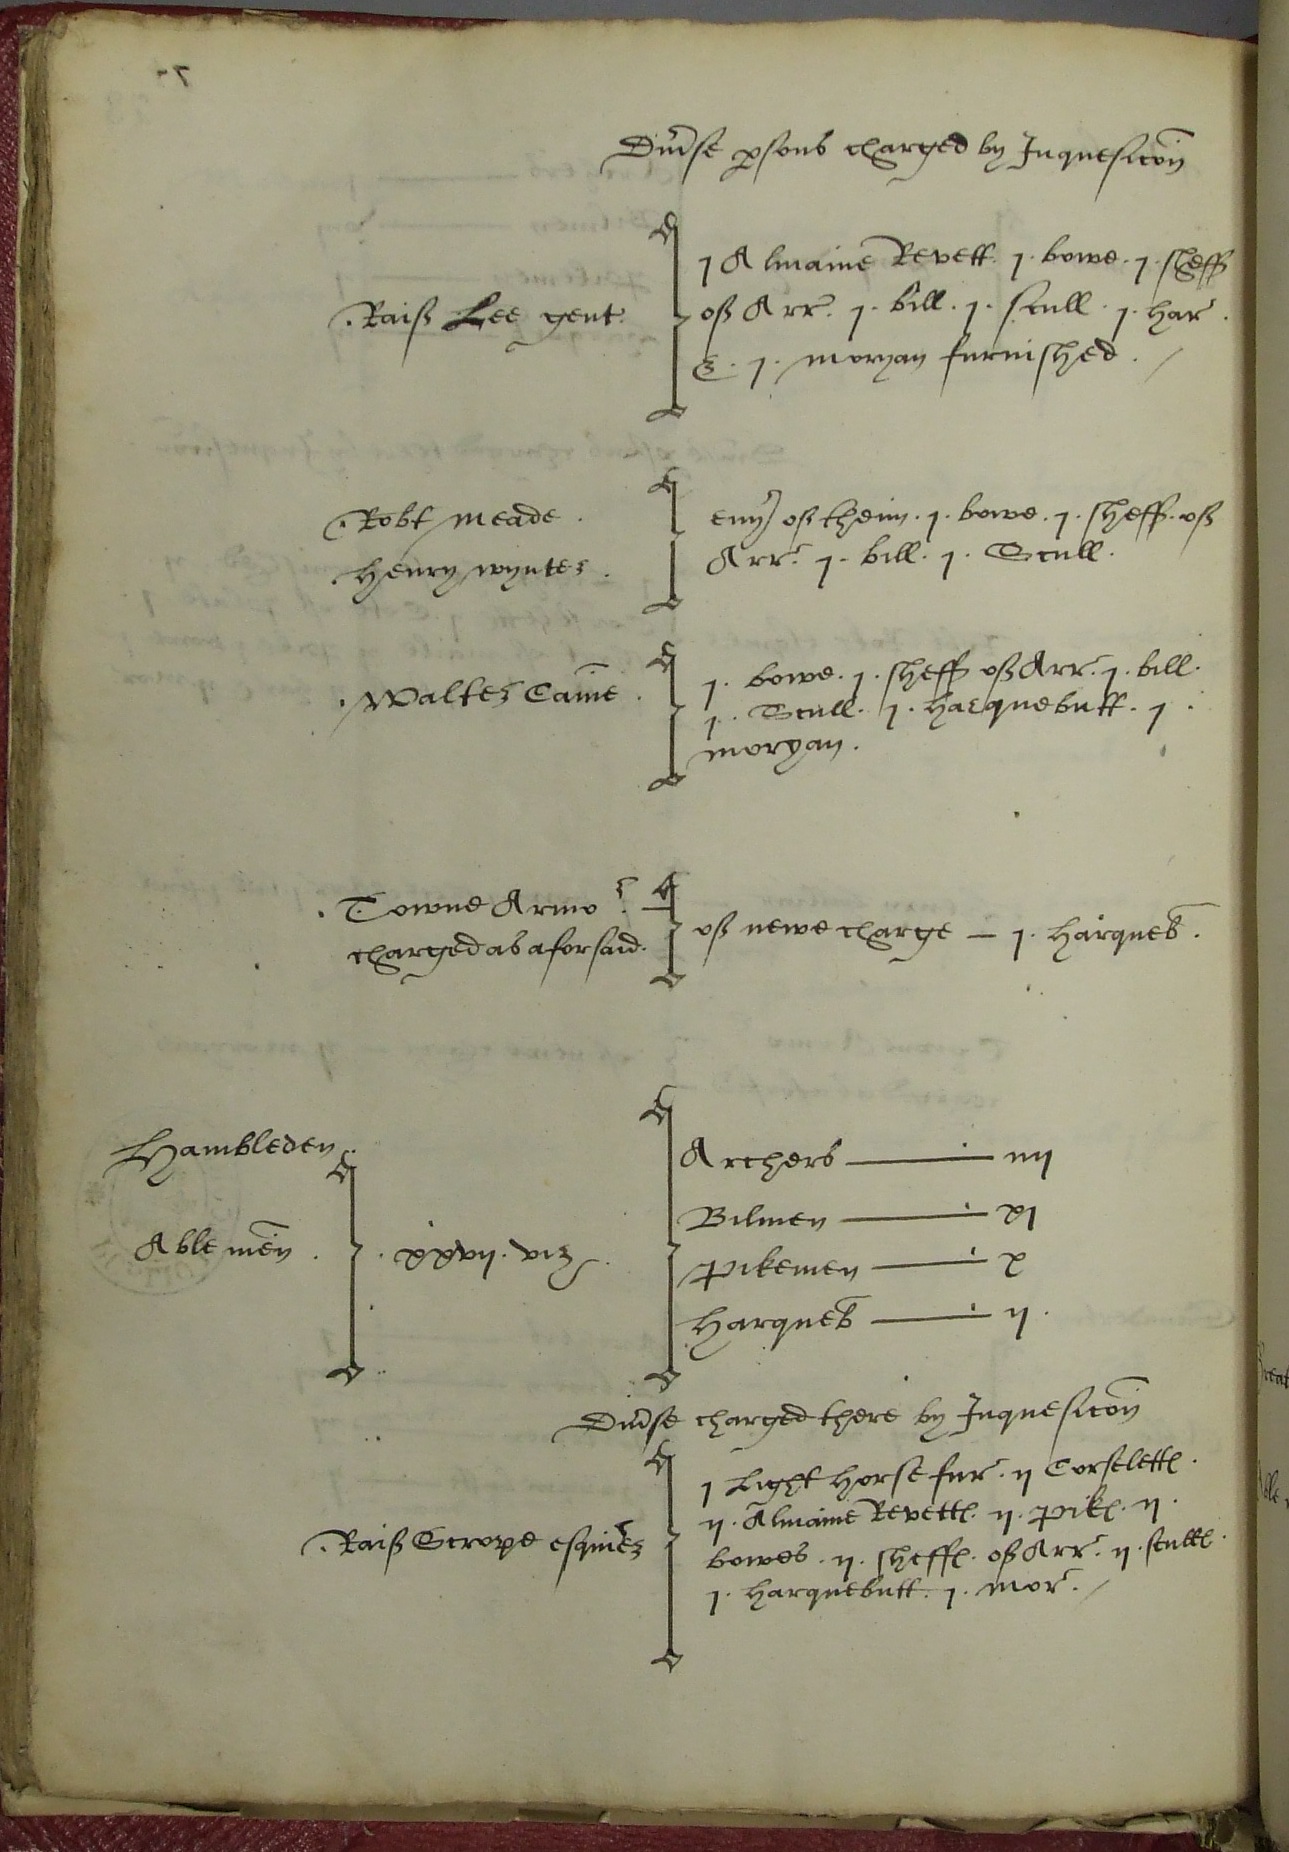 Div̄se p̱sons charged by Inquesicōn
Raiff Lee gent
j Almaine Revett. j. bowe. j. sheff
off Arr. j. bill. j. scull. j. har.
& . j. moryan furnished.
Robt meade.
Henry wynter.
eu'y off theim. j. bowe. j. sheff. off
Arr. j. bill. j. Scull.
Walter Cam̄e.
j. bowe. j. sheff off Arr. j. bill.
j. Scull. j. harquebutt. j.
moryan.
Towne Armor.
charged as aforsaid.
off newe charge — j. harqueb.
Hambleden.
Able men.
xxvij. viz
Archers — iiij
Bilmen — xj
pikemen — x
harqueb — ij.
Div̄se charged there by Inquesicōn
Raiff Scrope esquier
j Light horse fur. ij Corselettes.
ij. Almaine Revettes. ij. pikes. ij.
bowes. ij. sheffes. off Arr. ij. sculles.
j. harquebutt. j. mor.